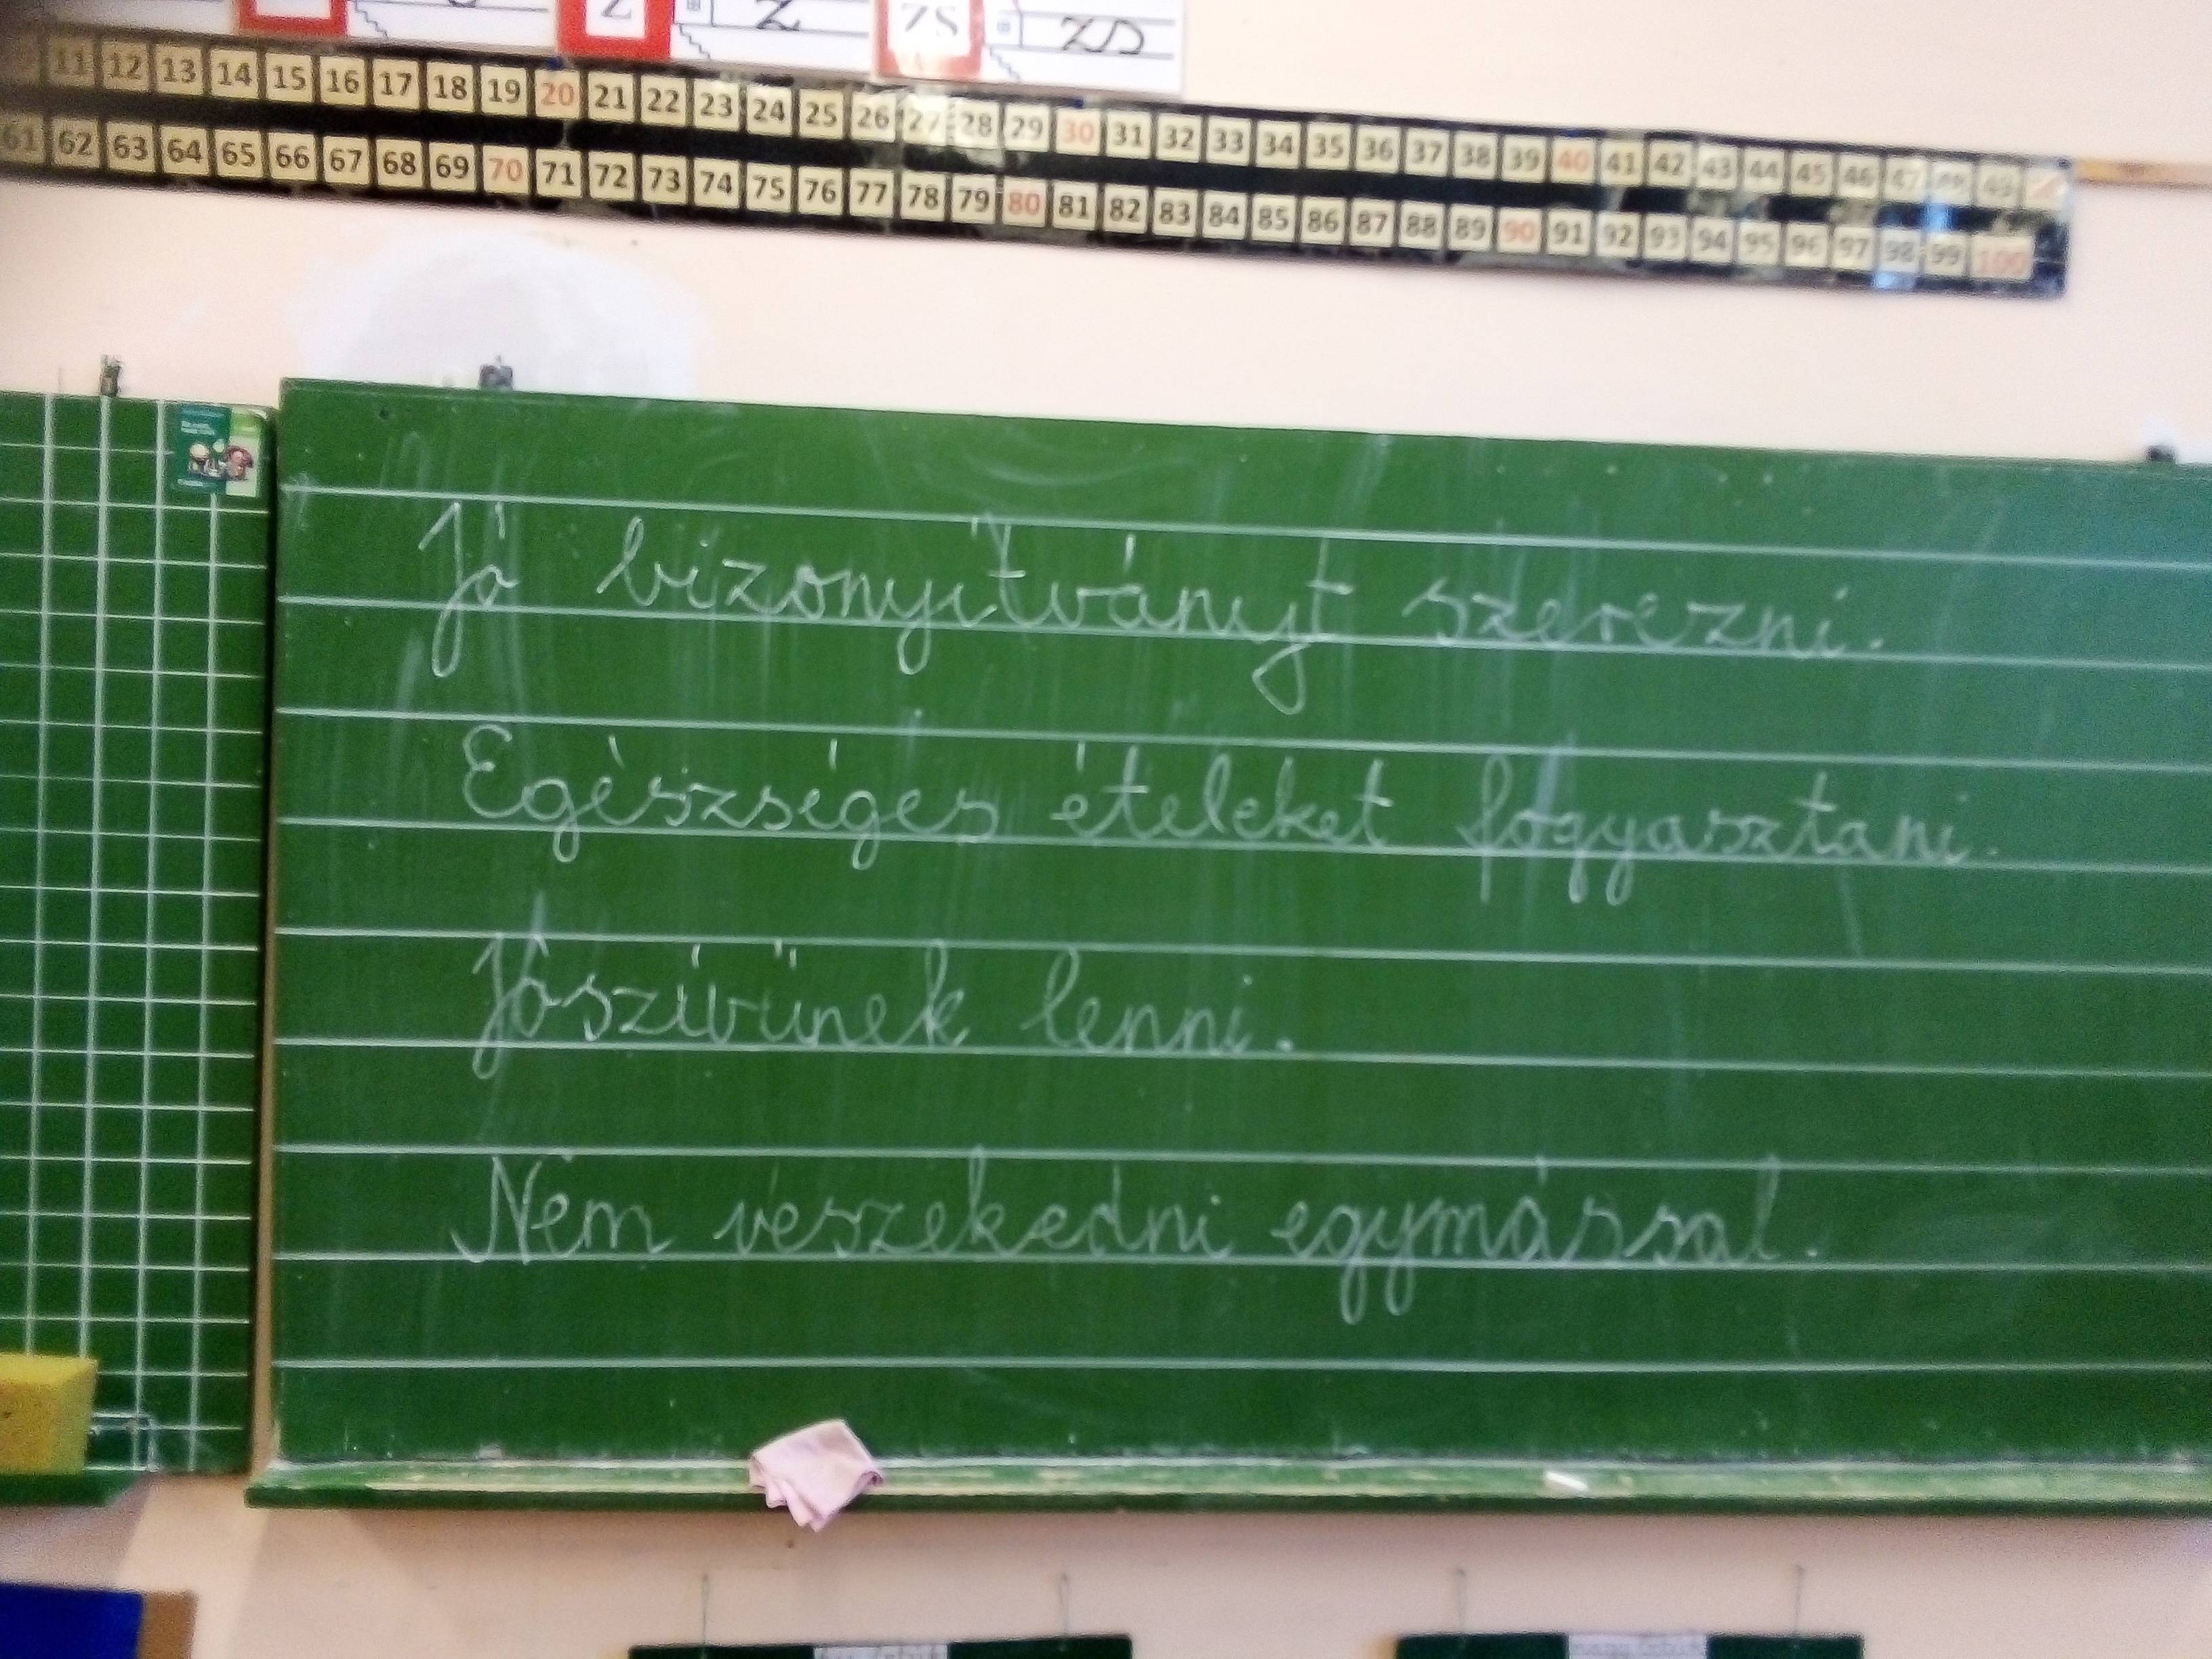 Z z ZS zs
11 12 13 14 15 16 17 18 19 20 21 22 23 24 25 26 27 28 29 30 31 32 33 34 35 36 37 38 39 40 41 42 43 44 45 46 47 48 49 50
61 62 63 64 65 66 67 68 69 70 71 72 73 74 75 76 77 78 79 80 81 82 83 84 85 86 87 88 89 90 91 92 93 94 95 96 97 98 99 100
Jó bizonyítványt szerezni.
Egészséges ételeket fogyasztani.
Jószívűnek lenni.
Nem veszekedni egymással.